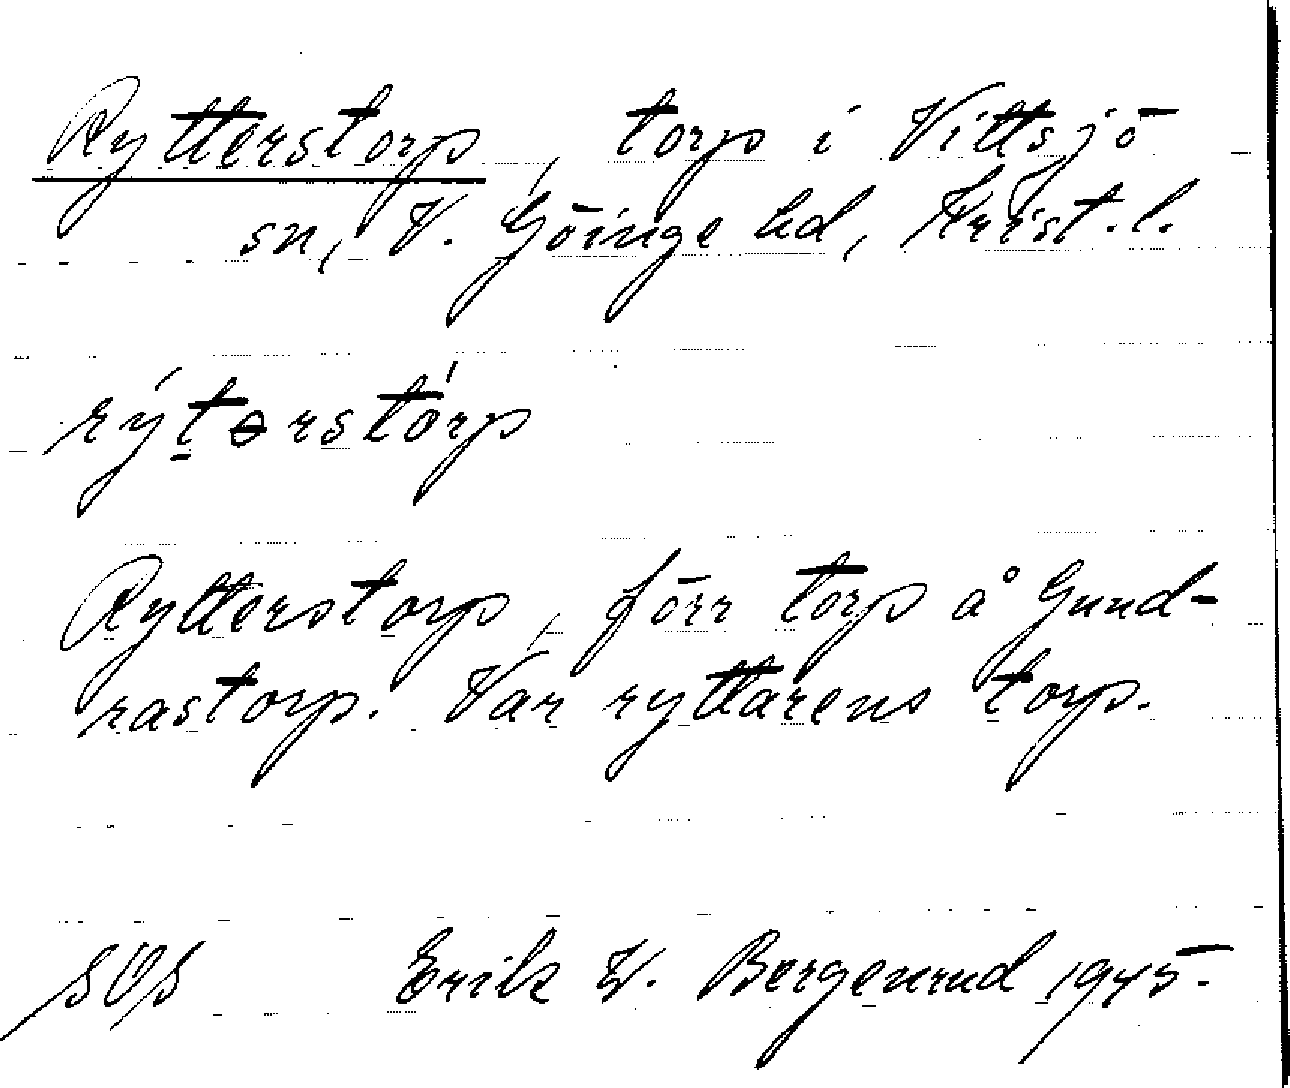 Rytterstorp, torp i Vittsjö
sn, V. Göinge hd, Krist. l.
rýt̲ɵrstórp
Rytterstorp, förr torp å Gund-
rastorp. Var ryttarens torp.
SOS Erik W. Bergenrud 1945.